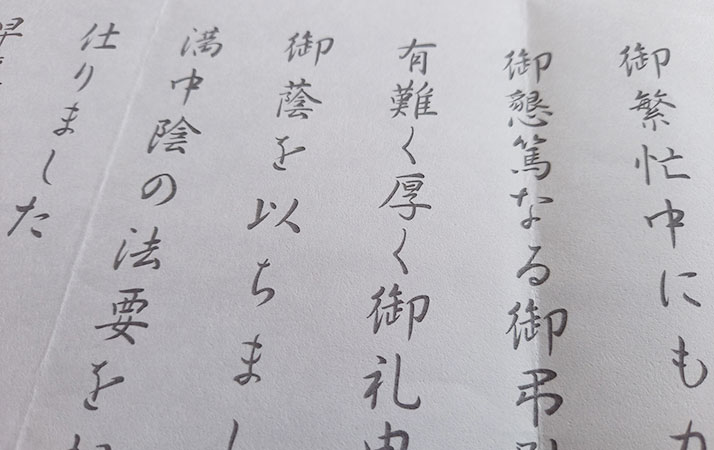 御繁忙中にも
御懇篤なる御弔
有難く厚く御礼
御蔭を以ちまし
満中陰の法要を
仕りました